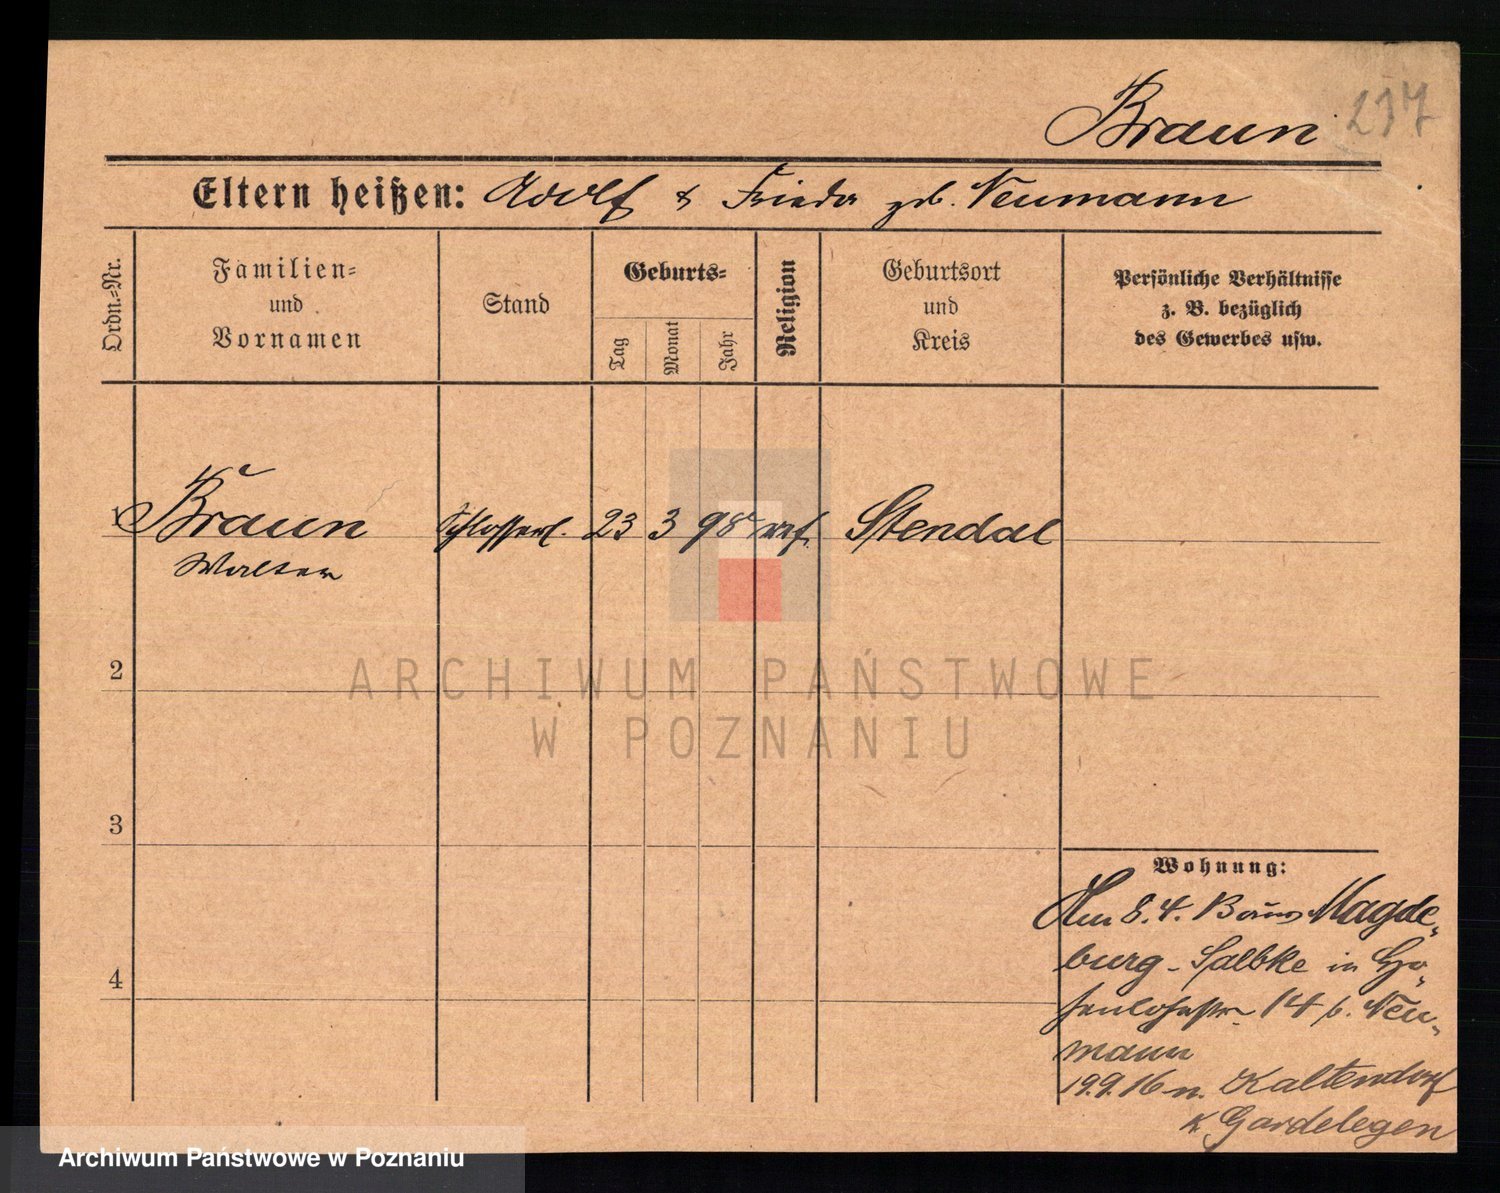 Braun 217
Eltern heißen: Adolf & Frieda geb. Neumann
Ordn.-Nr.
Familien-
und
Vornamen
Stand
Geburts-
Tag
Monat
Jahr
Religion
Geburtsort
und
Kreis
Persönliche Verhältnisse
z. B. bezüglich
des Gewerbes usw.
1 Braun Schlosserl. 23 3 98 ref. Stendal
Walter
2
ARCHIWUM PAŃSTWOWE
W POZNANIU
3
Wohnung:
Am 8.4. Magde-
burg-Salbke in Ho-
henlohestr. 14 b. Neu-
mann
19.9.16 n. Kaltendorf
K. Gardelegen
4
Archiwum Państwowe w Poznaniu